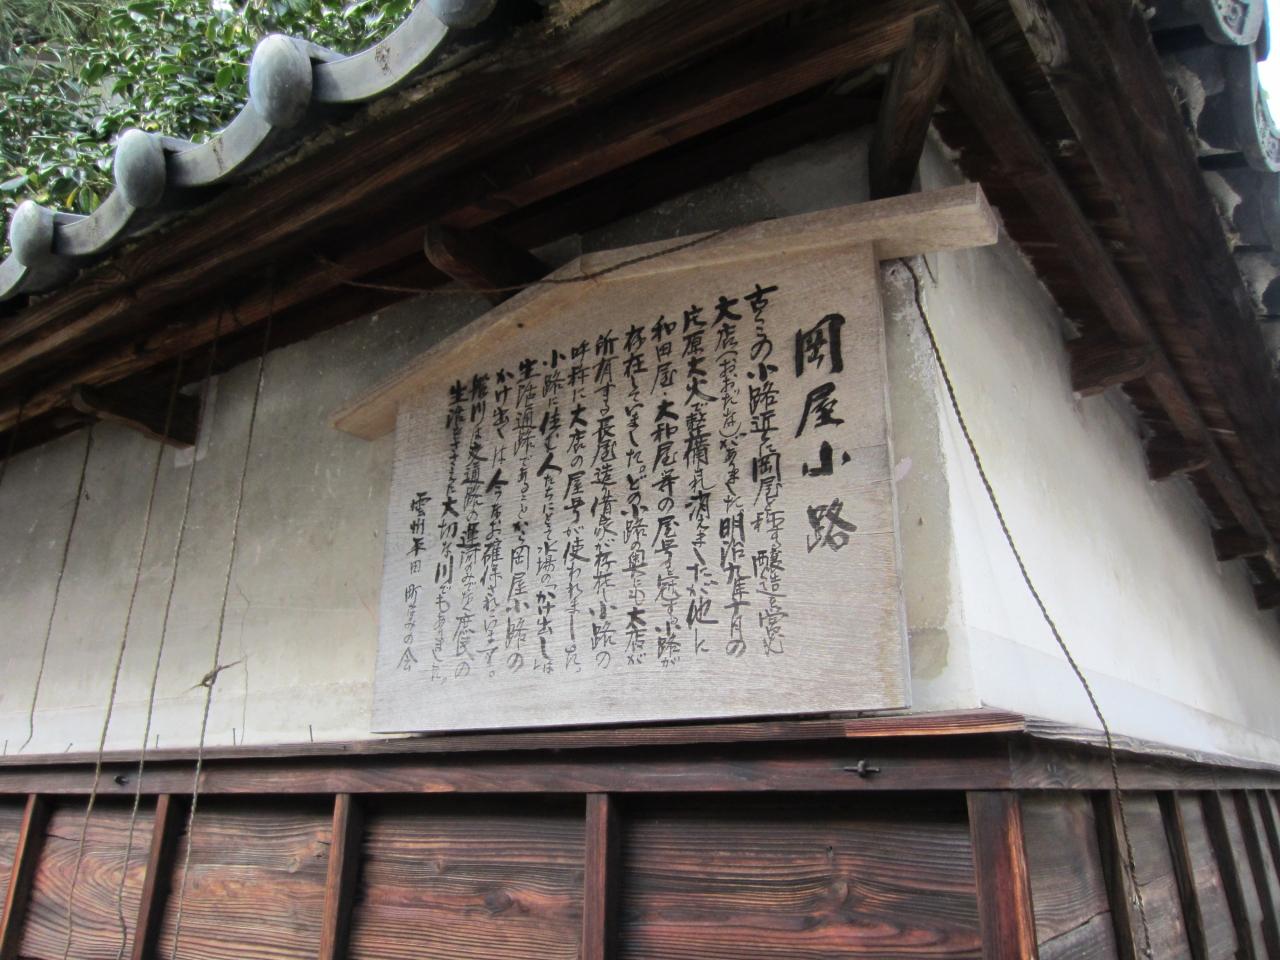 岡屋小路
古くこの小路近くに岡屋と称する醸造を営む
大店(おおだな)がありました明治九年十月の
片原大火で軽備され消えましたが他に
和田屋・大和屋等の屋号を冠する小路が
存在していました。どの小路の奥にも大店が
所有する長屋造り借家が存在し小路の
呼称に大店の屋号が使われました。
小路に住む人たちにとって水場の「かけ出し」は
生活通路であることから岡屋小路の
かけ出しは、人今なお確保されています。
船川は交通路の運河のみでなく庶民の
生活をささえた大切な川でもありました。
雲州平田 町なみの会